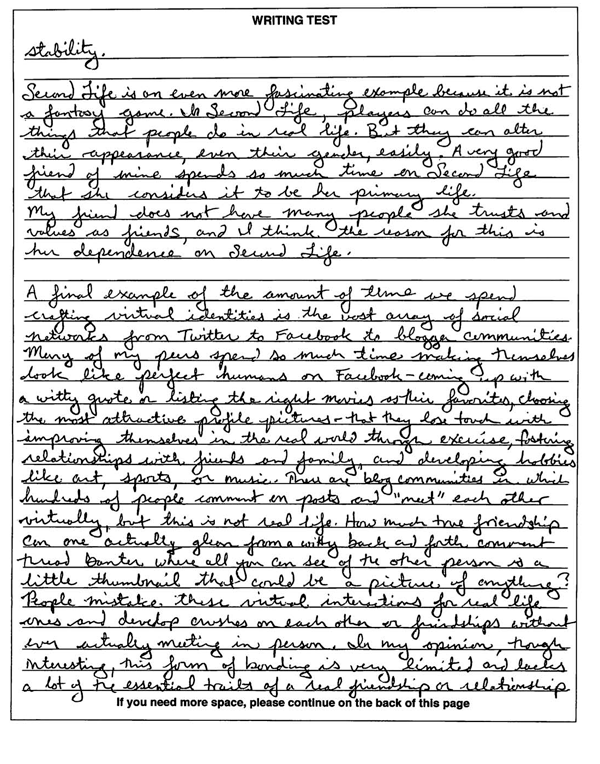 WRITING TEST
stability.
Second Life is an even more fascinating example because it is not
a fantasy game. In Second Life, players can do all the
things that people do in real life. But they can alter
their appearance, even their gender, easily. A very good
friend of mine spends so much time on Second Life
that she considers it to be her primary life.
My friend does not have many people she trusts and
values as friends, and I think the reason for this is
her dependence on Second Life.
A final example of the amount of time we spend
crafting virtual identities is the vast array of social
networks from Twitter to Facebook to blogger communities.
Many of my peers spend so much time making themselves
look like perfect humans on Facebook-coming up with
a witty quote or listing the right movies as their favorites, choosing
the most attractive profile pictures-that they lose touch with
improving themselves in the real world through exercise, fostering
relationships with friends and family, and developing hobbies
like art, sports, or music. There are blog communities in which
hundreds of people comment on posts and "meet" each other
virtually, but this is not real life. How much true friendship
can one actually glean from a witty back and forth comment
thread banter where all you can see of the other person is a
little thumbnail that could be a picture of anything?
People mistake these virtual interactions for real life
ones and develop crushes on each other or friendships without
ever actually meeting in person. In my opinion, though
interesting, this form of bonding is very limited and lacks
a lot of the essential traits of a real friendship or relationship
If you need more space, please continue on the back of this page